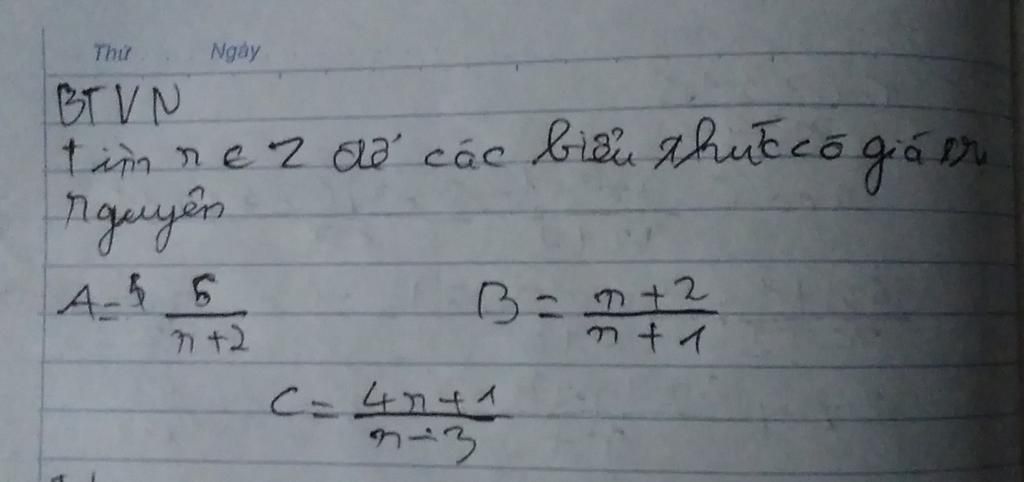 Thứ Ngày
BTVN
tìm n ∈ Z để các biểu thức có giá trị
nguyên
A = 5/(n+2) B = (n+2)/(n+1)
C = (4n+1)/(n-3)